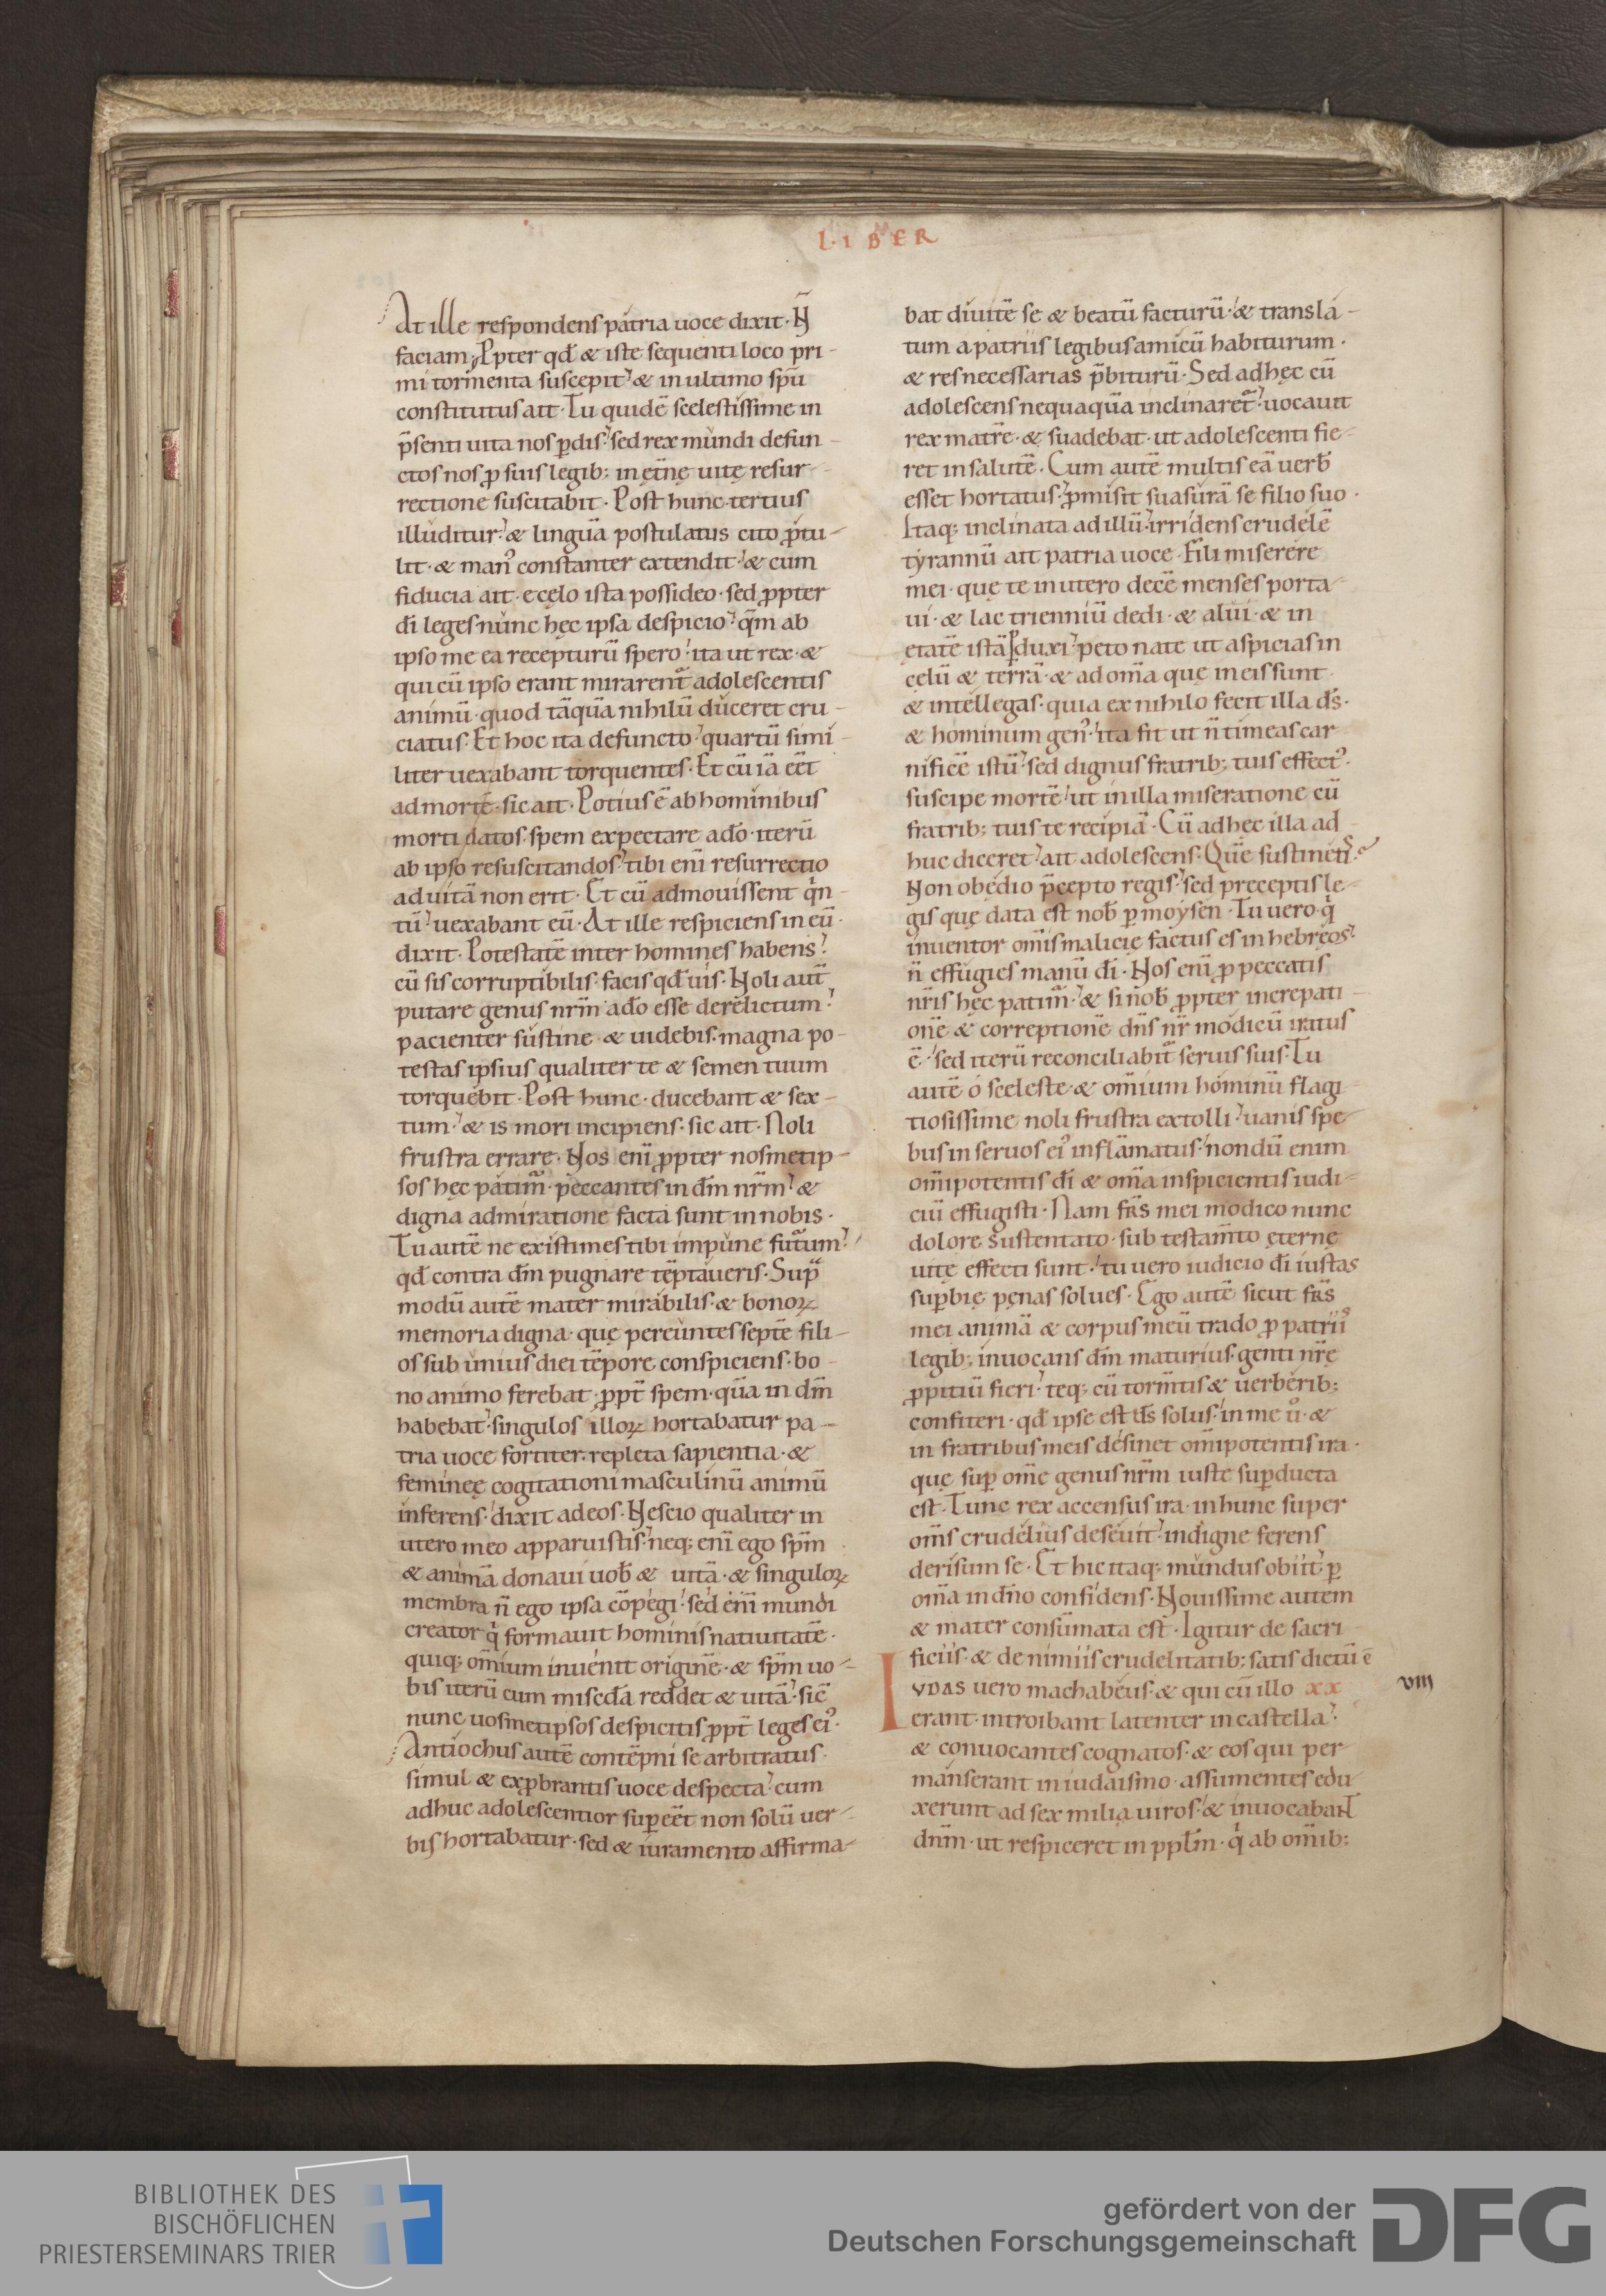 L·I BER
At ille respondens patria uoce dixit· N̄
faciam; Ꝓpter qđ & iste sequenti loco pri-
mi tormenta suscepit· & in ultimo spū
constitutus ait· Tu quidē scelestissime in
p̄senti uita nos ꝑdis· sed rex mundi defun-
ctos nos ꝓ suis legib; in ęt̄nę uitę resur-
rectione suscitabit· Post hunc tertius
illuditur· & linguā postulatus cito ꝓtu-
lit· & man᾽ constanter extendit· & cum
fiducia ait· e cęlo ista possideo· sed ꝓpter
đi leges nunc hęc ipsa despicio· qm̄ ab
ipso me ea recepturū spero· ita ut rex· &
qui cū ipso erant mirarent᷑ adolescentis
animū· quod tāquā nihilū duceret cru-
ciatus· Et hoc ita defuncto· quartū simi-
liter uexabant torquentes· Et cū iā eēt
ad mortē· sic ait· Potius ē ab hominibus
morti datos· spem expectare a đo· iterū
ab ipso resuscitandos· tibi eni̅ resurrectio
ad uitā non erit· Et cū admouissent qͥn-
tū· uexabant eū· At ille respiciens in eū·
dixit· Potestatē inter homines habens·
cū sis corruptibilis· facis qđ uis· Noli aut̄
putare genus nr̄m a đo esse derelictum·
pacienter sustine· & uidebis· magna po-
testas ipsius qualiter te & semen tuum
torquebit· Post hunc· ducebant & sex-
tum· & is mori incipiens· sic ait· Noli
frustra errare· Nos eni̅ ꝓpter nosmetip-
sos hęc patim᷑· peccantes in đm nr̄m· &
digna admiratione facta sunt in nobis·
Tu autē ne existimes tibi impune futurum·
qđ contra đm pugnare tēptaueris· Supᷓ
modū autē mater mirabilis· & bonoꝝ
memoria digna· quę pereuntes septē fili-
os sub unius diei tēpore conspiciens· bo-
no animo ferebat· ꝓpt̄ spem· quā in dm̄
habebat· singulos illoꝝ hortabatur pa-
tria uoce fortiter· repleta sapientia· &
femineę cogitationi masculinū animū
inferens· dixit ad eos· Nescio qualiter in
utero meo apparuistis· neq; eni̅ ego spm̄
& animā donaui uob̄ & uitā· & singuloꝝ
membra n̄ ego ipsa cōpegi· sed eni̅ mundi
creator qͥ formauit hominis natiuitatē·
quiq; om̄ium inuenit originē· & spm̄ uo-
bis iterū cum miscđa reddet & uitā· sic̄
nunc uosmetipsos despicitis ꝓpt̄ leges ei᾽·
Antiochus autē contēpni se arbitratus·
simul & exꝓbrantis uoce despecta· cum
adhuc adolescentior suꝑeēt non solū uer-
bis hortabatur· sed & iuramento affirma-
bat diuitē se & beatū facturū· & transla-
tum a patriis legibus amicū habiturum·
& res necessarias p̄biturū· Sed ad hęc cū
adolescens nequaquā inclinaret᷑· uocauit
rex matrē· & suadebat· ut adolescenti fie-
ret in salutē· Cum autē multis eā uerb̄
esset hortatus· ꝓmisit suasurā se filio suo·
Itaq; inclinata ad illū· irridens crudelē
tyrannū ait patria uoce· Fili miserere
mei· quę te in utero decē menses porta-
ui· & lac trienniū dedi· & alui· & in
etatē istā ꝑduxi· peto nate ut aspicias in
cęlū & terrā· & ad om̄a quę in eis sunt·
& intellegas· quia ex nihilo fecit illa d̄s·
& hominum gen᾽· ita fit ut n̄ timeas car-
nificē istū· sed dignus fratrib; tuis effect᾽·
suscipe mortē· ut in illa miseratione cū
fratrib; tuis te recipiā· Cū ad hęc illa ad-
huc diceret· ait adolescens· Quē sustinetis·
Non obedio p̄cepto regis· sed preceptis le-
gis quę data est nob̄ ꝑ moysen· Tu uero qͥ
inuentor om̄is malicię factus es in hebręos·
n̄ effugies manū đi· Nos eni̅ ꝓ peccatis
nr̄is hęc patim᷑· & si nob̄ ꝓpter increpati-
onē & correptionē dn̄s nr̄ modicū iratus
ē· sed iterū reconciliabit᷑ seruis suis· Tu
autē o sceleste· & om̄ium hominū flagi-
tiosissime noli frustra extolli· uanis spe-
bus in seruos ei᾽ inflāmatus· nondū enim
om̄ipotentis đi & om̄a inspicientis iudi-
ciū effugisti· Nam fr̄s mei modico nunc
dolore sustentato· sub testam̄to ęternę
uitę effecti sunt· tu uero iudicio đi iustas
suꝑbię pęnas solues· Ego autē sicut fr̄s
mei animā & corpus meū trado ꝓ patriis
legib; inuocans đm maturius· genti nr̄ę
ꝓpitiū fieri· teq; cū torm̄tis & uerberib;
confiteri· qđ ipse est d̄s solus· in me u͛o· &
in fratribus meis desinet om̄ipotentis ira·
quę suꝑ om̄e genus nr̄m iuste suꝑducta
est· Tunc rex accensus ira· in hunc super
om̄s crudelius deseuit· indigne ferens
derisum se· Et hic itaq; mundus obiit· ꝑ
om̄a in dn̄o confidens· Nouissime autem
& mater consūmata est· Igitur de sacri-
ficiis· & de nimiis crudelitatib; satis dictū ē
IVDAS uero machabeus· & qui cū illo xx
viii
erant· introibant latenter in castella·
& conuocantes cognatos· & eos qui per
manserant in iudaismo· assumentes edu-
xerunt ad sex milia uiros· & inuocabaNT
dn̄m· ut respiceret in ppl̄m· qͥ ab om̄ib;
BIBLIOTHEK DES
BISCHÖFLICHEN
PRIESTERSEMINARS TRIER
gefördert von der
Deutschen Forschungsgemeinschaft
DFG